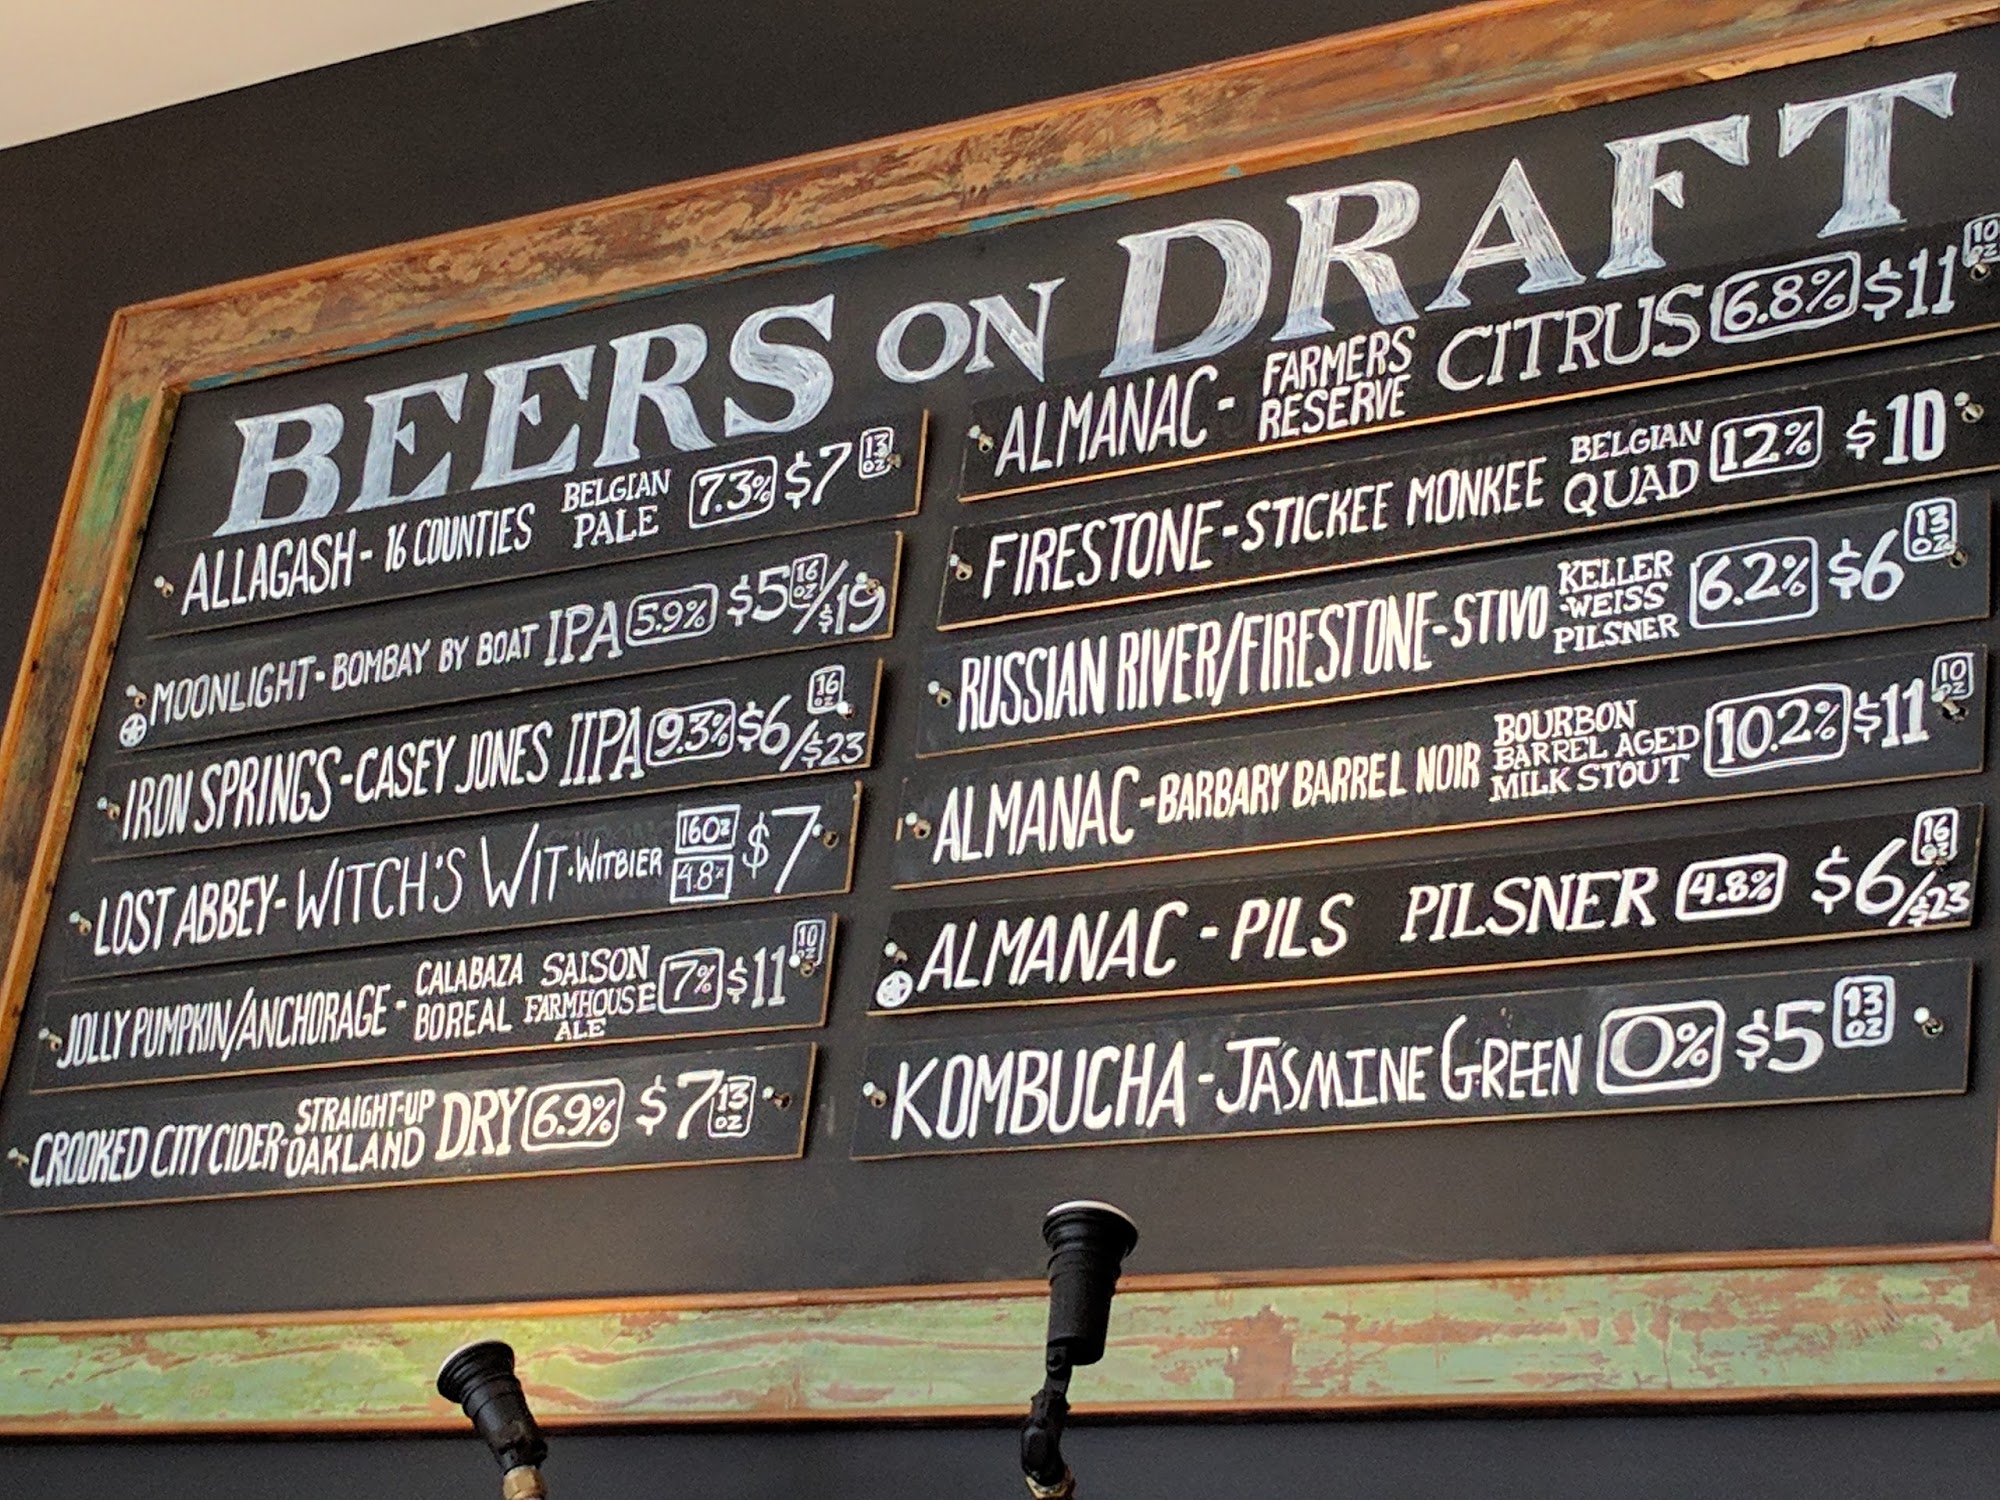 BEERS ON DRAFT
ALLAGASH - 16 COUNTIES BELGIAN PALE 7.3% $7 13 OZ
MOONLIGHT - BOMBAY BY BOAT IPA 5.9% $5 16 OZ / $19
IRON SPRINGS - CASEY JONES IIPA 9.3% $6 16 OZ / $23
LOST ABBEY - WITCH'S WIT · WITBIER 16OZ 4.8% $7
JOLLY PUMPKIN/ANCHORAGE - CALABAZA BOREAL SAISON FARMHOUSE ALE 7% $11 10 OZ
CROOKED CITY CIDER - STRAIGHT-UP OAKLAND DRY 6.9% $7 13 OZ
ALMANAC - FARMERS RESERVE CITRUS 6.8% $11 10 OZ
FIRESTONE - STICKEE MONKEE BELGIAN QUAD 12% $10
RUSSIAN RIVER/FIRESTONE - STIVO KELLER -WEISS PILSNER 6.2% $6 13 OZ
ALMANAC - BARBARY BARREL NOIR BOURBON BARREL AGED MILK STOUT 10.2% $11 10 OZ
ALMANAC - PILS PILSNER 4.8% $6 16 OZ / $23
KOMBUCHA - JASMINE GREEN 0% $5 13 OZ